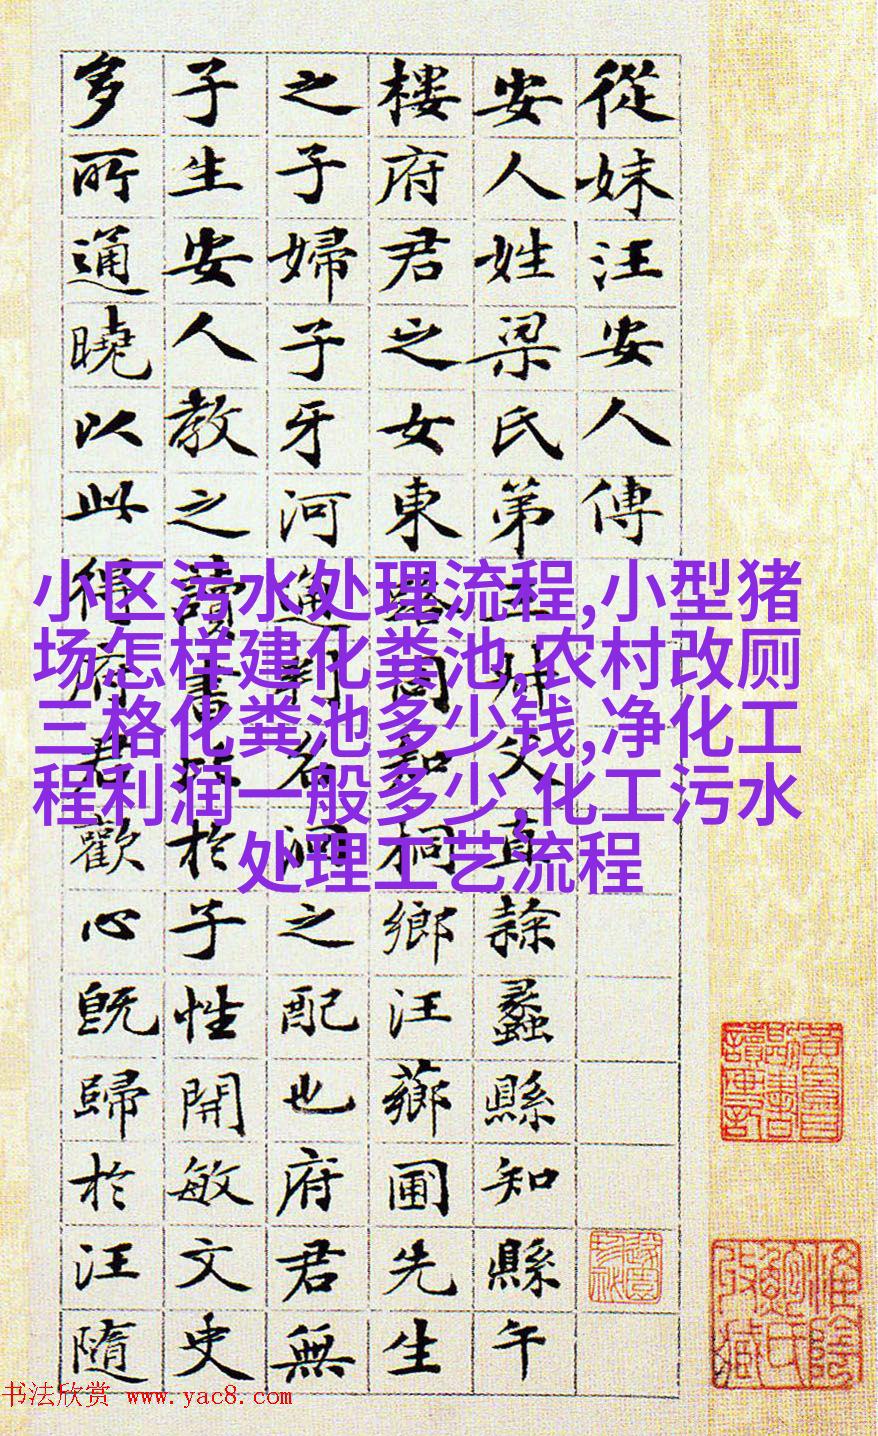 從妹汪安人傳
安人姓梁氏弟父直隸蠡縣知縣午
樓府君之女東路同知桐鄉汪薌圃先生
之子婦子牙河通判名洄之配也府君無
子生安人教之讀書於子性開敏文史
多所通曉以此得府君歡心既歸於汪隨
小区污水处理流程,小型猪
场怎样建化粪池,农村改厕
三格化粪池多少钱,净化工
程利润一般多少,化工污水
处理工艺流程
书法欣赏 www.yac8.com